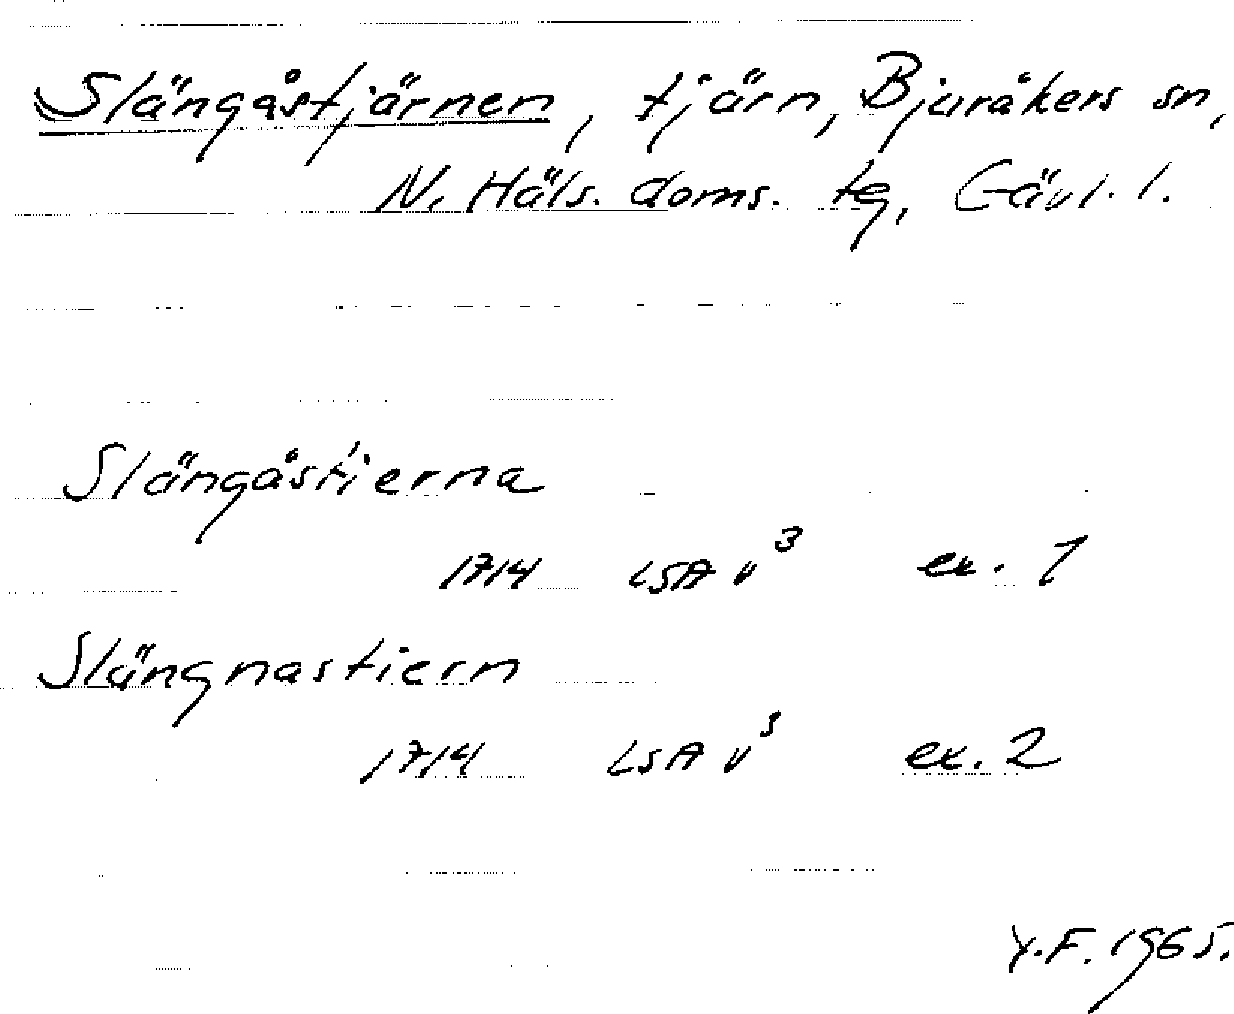 Slängåstjärnen, tjärn, Bjuråkers sn,
N. Häls. doms. tg, Gävl. l.
Slängåstierna
1714 LSA v³ ex. 1
Slängnastiern
1714 LSA v³ ex. 2
Y.F. 1965.